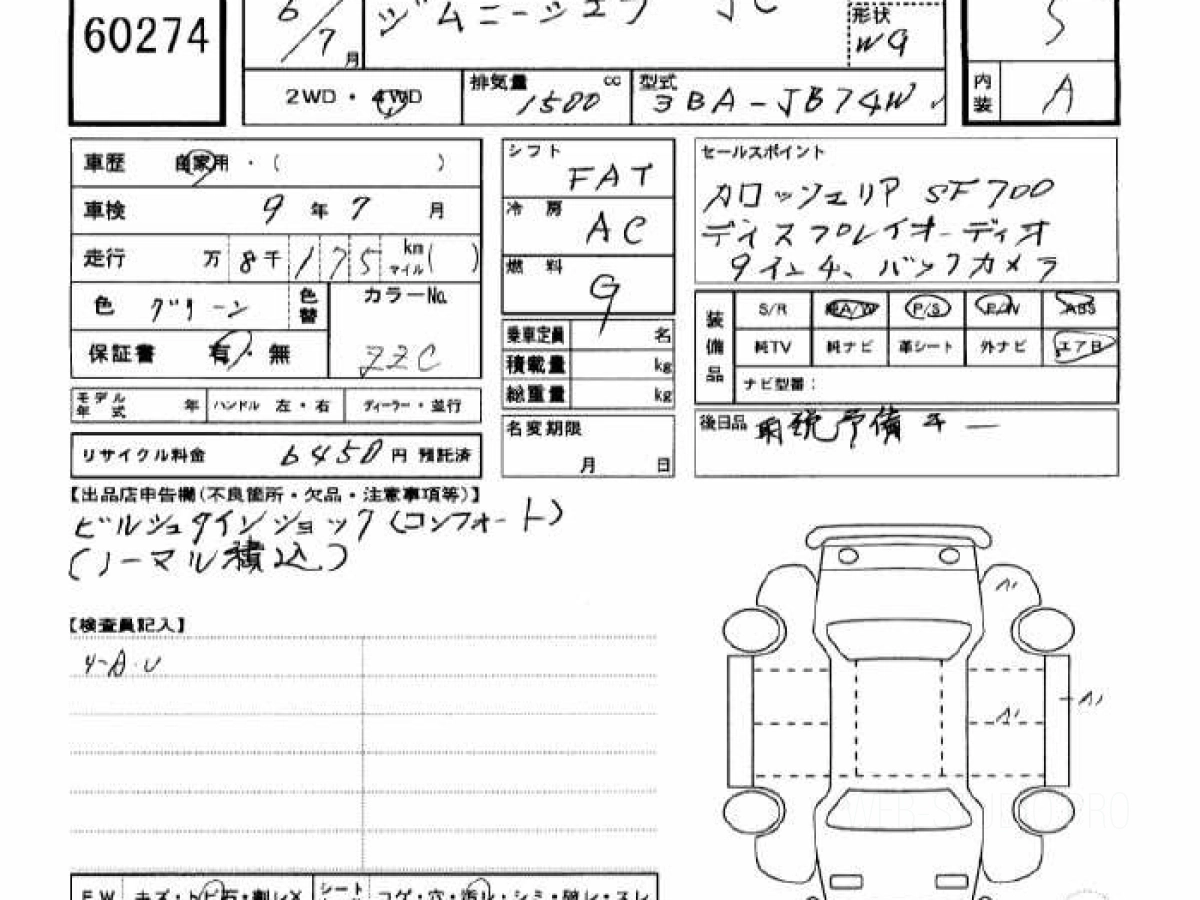 60274
6/7月
ジムニーシエラ JC
形状
WG
S
2WD・4WD
排気量 1500 cc
型式 3BA-JB74W
内装 A
車歴 自家用・( )
車検 9年7月
走行 万8千175 km マイル( )
色 グリーン 色替
カラーNo. ZZC
保証書 有・無
モデル年式 年 ハンドル 左・右 ディーラー・並行
リサイクル料金 6450円 預託済
シフト FAT
冷房 AC
燃料 G
乗車定員 名
積載量 kg
総重量 kg
名変期限 月 日
セールスポイント
カロッツェリア SF700
ディスプレイオーディオ
9インチ、バックカメラ
装備品
S/R 純A/W P/S P/W ABS
純TV 純ナビ 革シート 外ナビ エアB
ナビ型番:
後日品 取説予備キー
【出品店申告欄(不良箇所・欠品・注意事項等)】
ビルシュタインショック(コンフォート)
(ノーマル積込)
【検査員記入】
4-A・U
A1
A1
A1
WEB-STUDIOPRO
FW キズ・トビ石・割レX シート コゲ・穴・汚レ・シミ・破レ・スレ